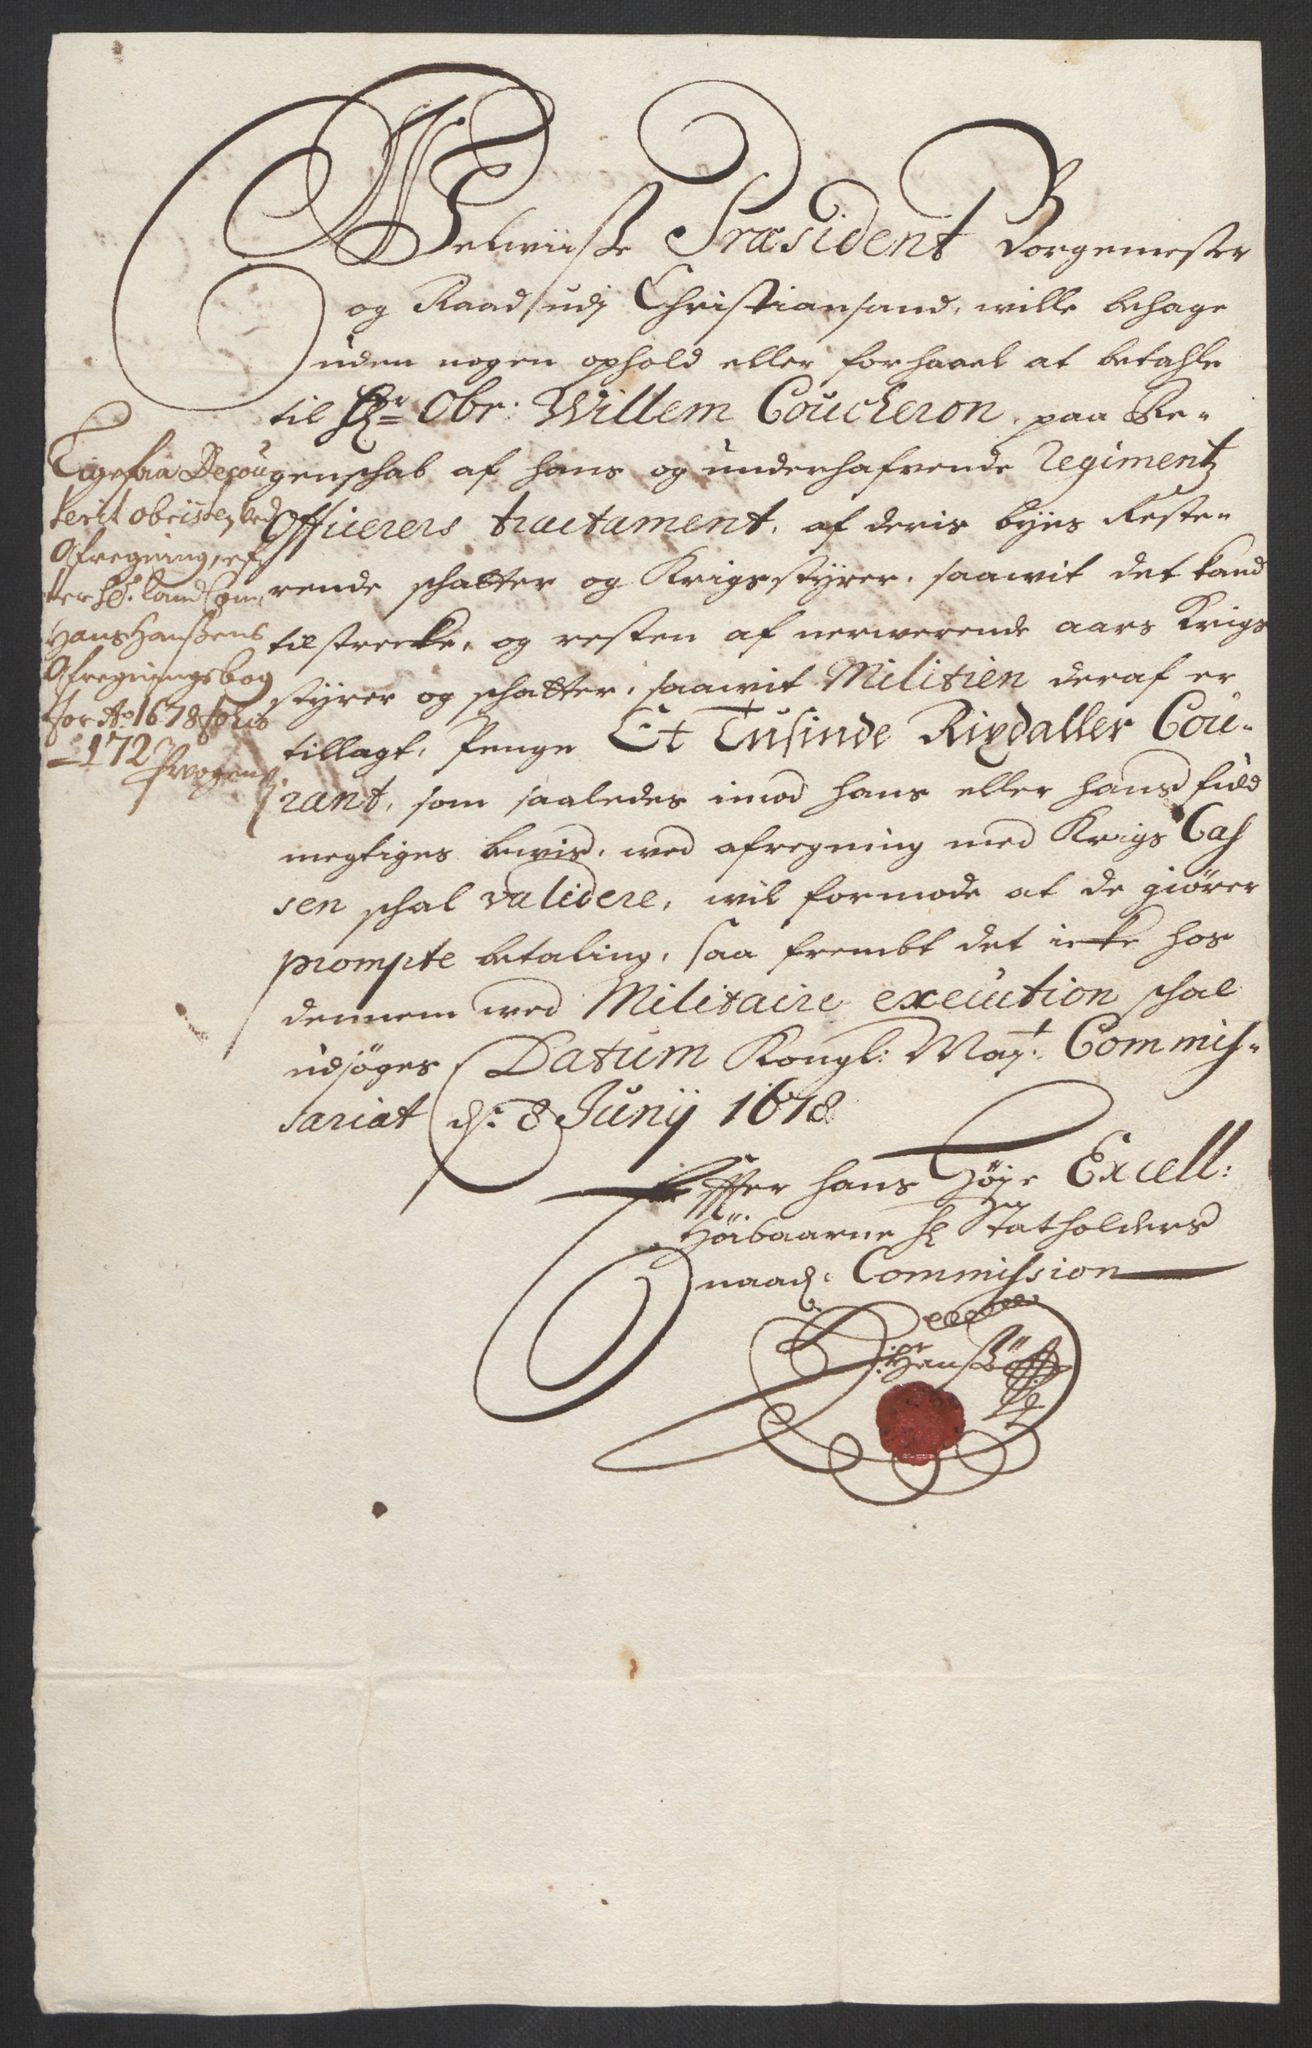 Welwiisze Præsident Borgemester
og Raad udj Christiansand, wille behage
uden nogen ophold eller forhaael at betahle
til Hr Obr: Willem Coucheron, paa Re-
genschab af hans og underhafvende Regimentz
Officerers tractament, af deris byes Reste-
rende schatter og Krigsstyrer, saawit det kand
tilstrecke, og resten af nerwerende aars Krigs
styrer og schatter, saawit Militien deraf er
tillagt, Penge Et Tusinde Rixdaller Cou-
rant, som saaledes imod hans eller hans fuld
megtiges bewis, wed afregning med Krigs Cas
sen schal validere, wil formode at de giører
prompte betaling, saa frembt det icke hos
dennem wed Militaire execution schal
udsøges Datum Kongl: Mayt: Commis-
sariat d: 8 Junij 1678
Effter hans Høje Excell:
Høibaarne Hr Statholders
naad: Commission
Hansz
Ligesaa Decou
terit obristen ved
Afregning, ef
ter Sl. land Com:
Hans Hanszens
Afregningsbog
for Ao 1678 Folio
172